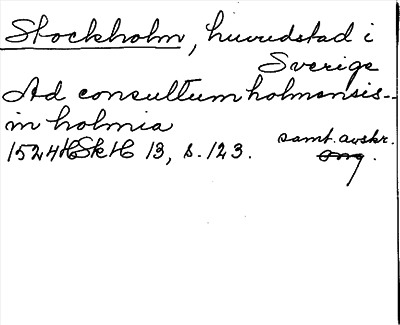 Stockholm, huvudstad i
Sverige
Ad consultum holmensis--
in holmia
1524 HSkH 13, s. 123.
samt. avskr.
orig.